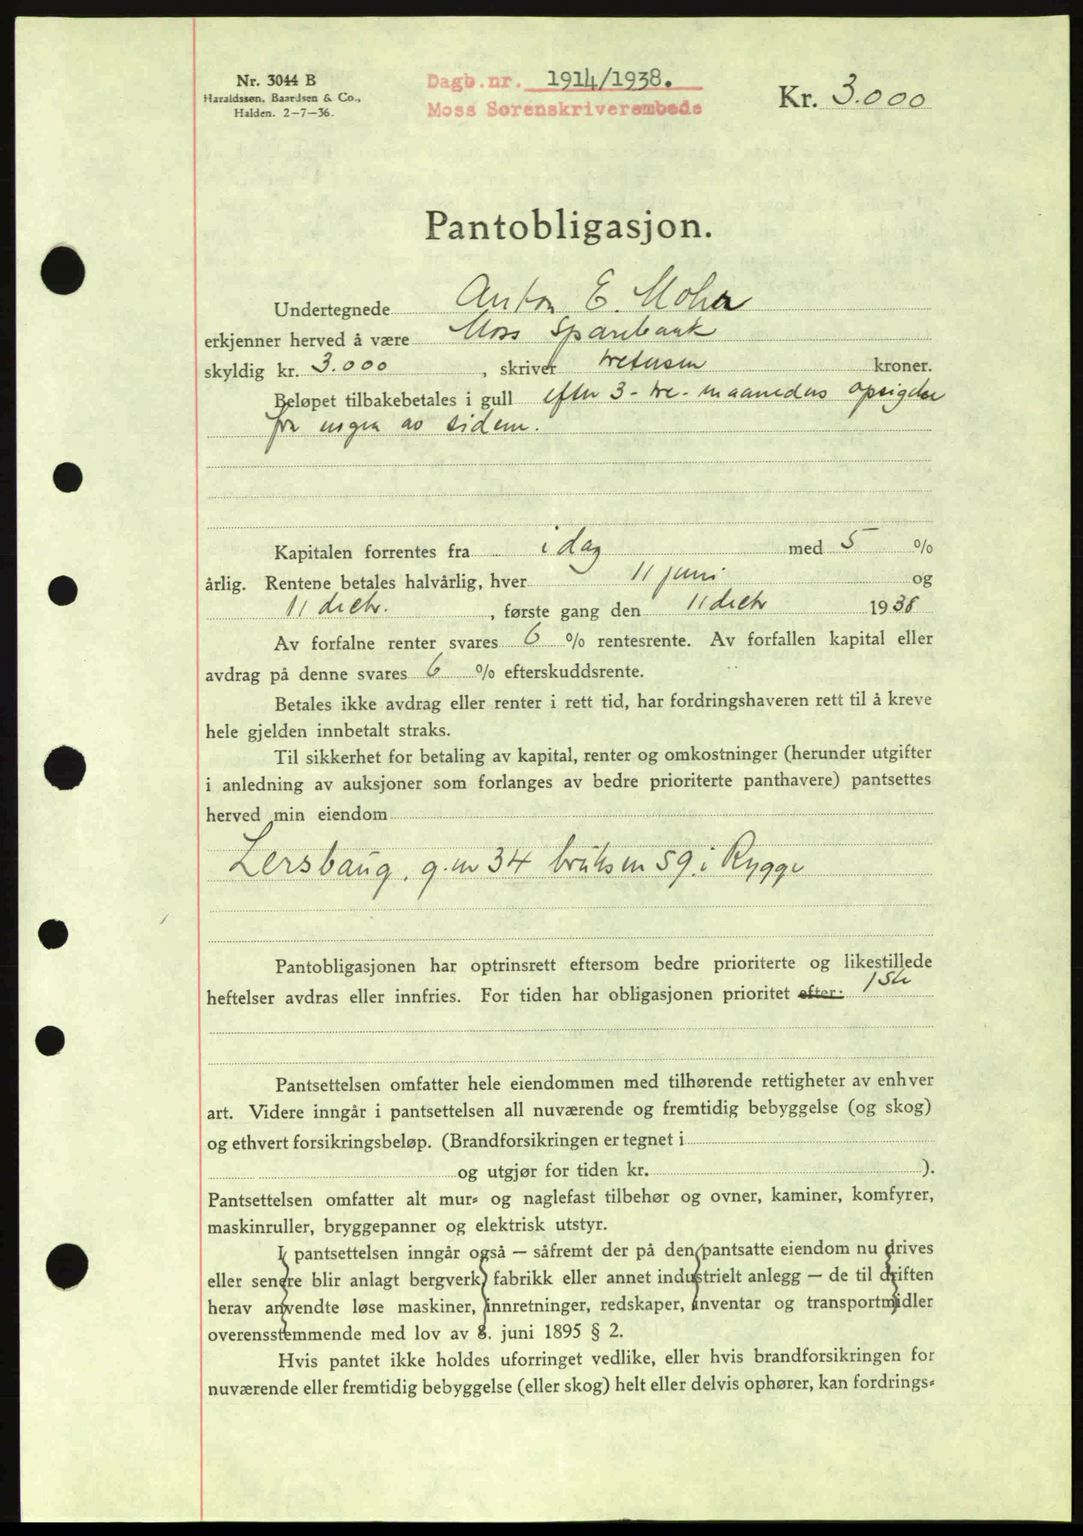 Nr. 3044 B
Haraldssen, Baardsen & Co.,
Halden. 2-7-36.
Dagb.nr. 1914/1938.
Moss Sorenskriverembede
Kr. 3.000
Pantobligasjon.
Undertegnede Anton E. Moher
erkjenner herved å være Moss Sparebank
skyldig kr. 3.000, skriver tretusen kroner.
Beløpet tilbakebetales i gull efter 3- tre- maaneders opsigelse
fra nogen av siden.
Kapitalen forrentes fra idag med 5 %
årlig. Rentene betales halvårlig, hver 11 juni og
11 decbr., første gang den 11 decbr 1938
Av forfalne renter svares 6 % rentesrente. Av forfallen kapital eller
avdrag på denne svares 6 % efterskuddsrente.
Betales ikke avdrag eller renter i rett tid, har fordringshaveren rett til å kreve
hele gjelden innbetalt straks.
Til sikkerhet for betaling av kapital, renter og omkostninger (herunder utgifter
i anledning av auksjoner som forlanges av bedre prioriterte panthavere) pantsettes
herved min eiendom
Lersbaug, g.nr 34 bruksnr 59 i Rygge
Pantobligasjonen har optrinsrett eftersom bedre prioriterte og likestillede
heftelser avdras eller innfries. For tiden har obligasjonen prioritet efter: 1ste
Pantsettelsen omfatter hele eiendommen med tilhørende rettigheter av enhver
art. Videre inngår i pantsettelsen all nuværende og fremtidig bebyggelse (og skog)
og ethvert forsikringsbeløp. (Brandforsikringen er tegnet i
og utgjør for tiden kr. ).
Pantsettelsen omfatter alt mur- og naglefast tilbehør og ovner, kaminer, komfyrer,
maskinruller, bryggepanner og elektrisk utstyr.
I pantsettelsen inngår også — såfremt der på den pantsatte eiendom nu drives
eller senere blir anlagt bergverk, fabrikk eller annet industrielt anlegg — de til driften
herav anvendte løse maskiner, innretninger, redskaper, inventar og transportmidler
overensstemmende med lov av 8. juni 1895 § 2.
Hvis pantet ikke holdes uforringet vedlike, eller hvis brandforsikringen for
nuværende eller fremtidig bebyggelse (eller skog) helt eller delvis ophører, kan fordrings-